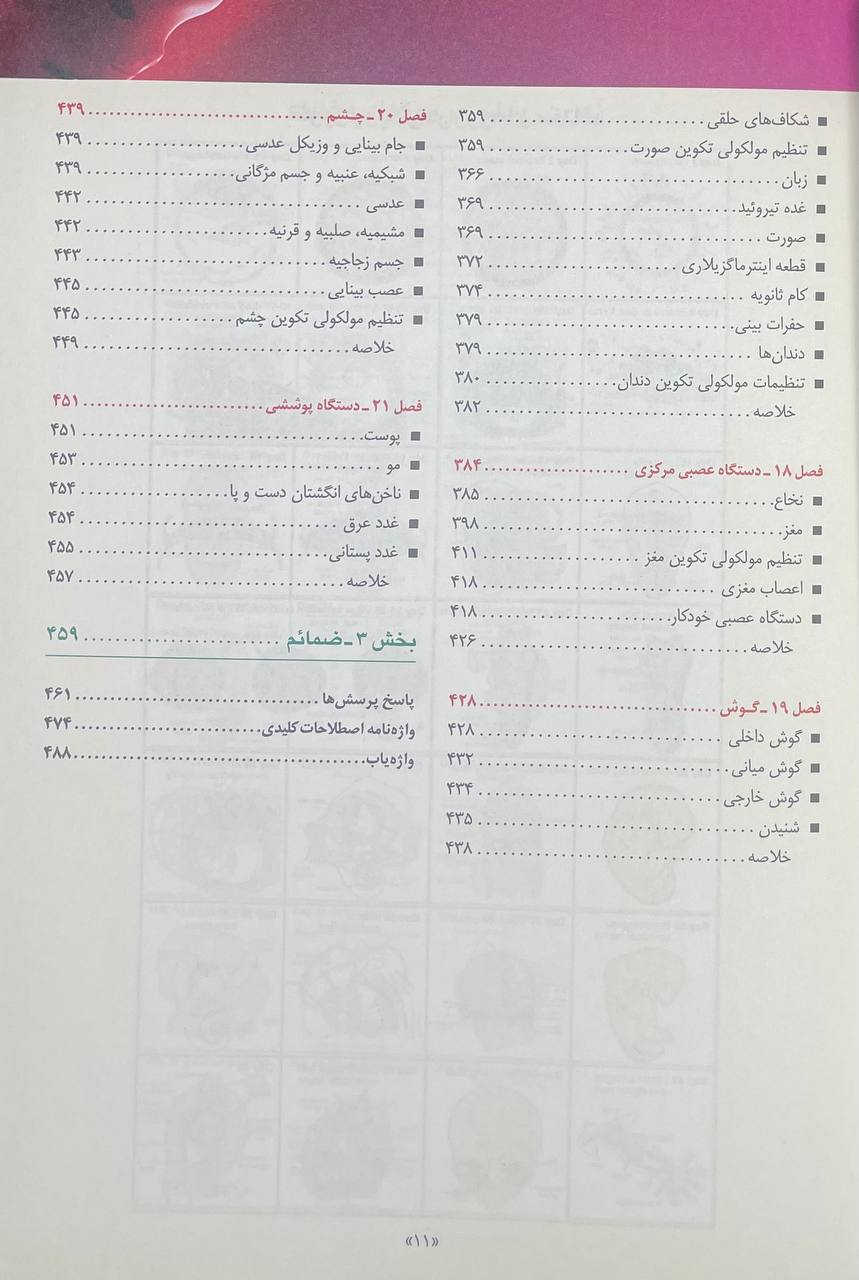 ■ شکاف‌های حلقی ........................... ۳۵۹
■ تنظیم مولکولی تکوین صورت ........................... ۳۵۹
■ زبان ........................... ۳۶۶
■ غده تیروئید ........................... ۳۶۹
■ صورت ........................... ۳۶۹
■ قطعه اینترماگزیلاری ........................... ۳۷۲
■ کام ثانویه ........................... ۳۷۴
■ حفرات بینی ........................... ۳۷۹
■ دندان‌ها ........................... ۳۷۹
■ تنظیمات مولکولی تکوین دندان ........................... ۳۸۰
خلاصه ........................... ۳۸۲
فصل ۱۸ ـ دستگاه عصبی مرکزی ........................... ۳۸۴
■ نخاع ........................... ۳۸۵
■ مغز ........................... ۳۹۸
■ تنظیم مولکولی تکوین مغز ........................... ۴۱۱
■ اعصاب مغزی ........................... ۴۱۸
■ دستگاه عصبی خودکار ........................... ۴۱۸
خلاصه ........................... ۴۲۶
فصل ۱۹ ـ گوش ........................... ۴۲۸
■ گوش داخلی ........................... ۴۲۸
■ گوش میانی ........................... ۴۳۲
■ گوش خارجی ........................... ۴۳۴
■ شنیدن ........................... ۴۳۵
خلاصه ........................... ۴۳۸
فصل ۲۰ ـ چشم ........................... ۴۳۹
■ جام بینایی و وزیکل عدسی ........................... ۴۳۹
■ شبکیه، عنبیه و جسم مژگانی ........................... ۴۳۹
■ عدسی ........................... ۴۴۲
■ مشیمیه، صلبیه و قرنیه ........................... ۴۴۲
■ جسم زجاجیه ........................... ۴۴۳
■ عصب بینایی ........................... ۴۴۵
■ تنظیم مولکولی تکوین چشم ........................... ۴۴۵
خلاصه ........................... ۴۴۹
فصل ۲۱ ـ دستگاه پوششی ........................... ۴۵۱
■ پوست ........................... ۴۵۱
■ مو ........................... ۴۵۳
■ ناخن‌های انگشتان دست و پا ........................... ۴۵۴
■ غدد عرق ........................... ۴۵۴
■ غدد پستانی ........................... ۴۵۵
خلاصه ........................... ۴۵۷
بخش ۳ ـ ضمائم ........................... ۴۵۹
پاسخ پرسش‌ها ........................... ۴۶۱
واژه‌نامه اصطلاحات کلیدی ........................... ۴۷۴
واژه‌یاب ........................... ۴۸۸
«۱۱»